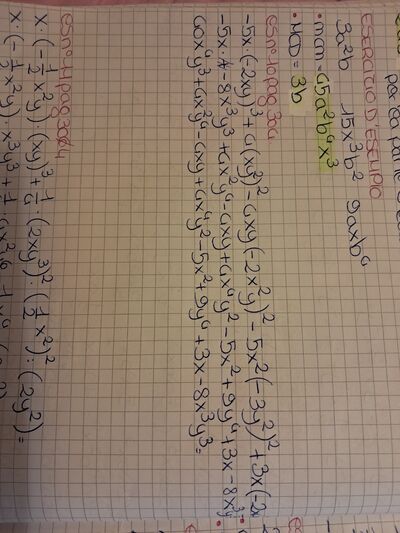 per la parte
ESERCIZIO D'ESEMPIO
3a²b 15x³b² 9axb⁴
• mcm = 45a²b⁴x³
• MCD = 3b
-5x·(-2xy)³+4(xy²)²-4xy(-2x²y)²-5x²(-3y²)²+3x(-2x
-5x·-8x³y³+4x²y⁴-4xy+4x⁴y²-5x²+9y⁴+3x-8x³y³=
+4x²y⁴-4xy+4x⁴y²-5x²+9y⁴+3x-8x³y³=
es n° 11 pag 304
x·(-1/2x²y)·(xy)³+1/4·(2xy³)²:(1/2x²)²:(-2y²)=
x·(-1/2x²y)·x³y³+1/4·4x²y⁶